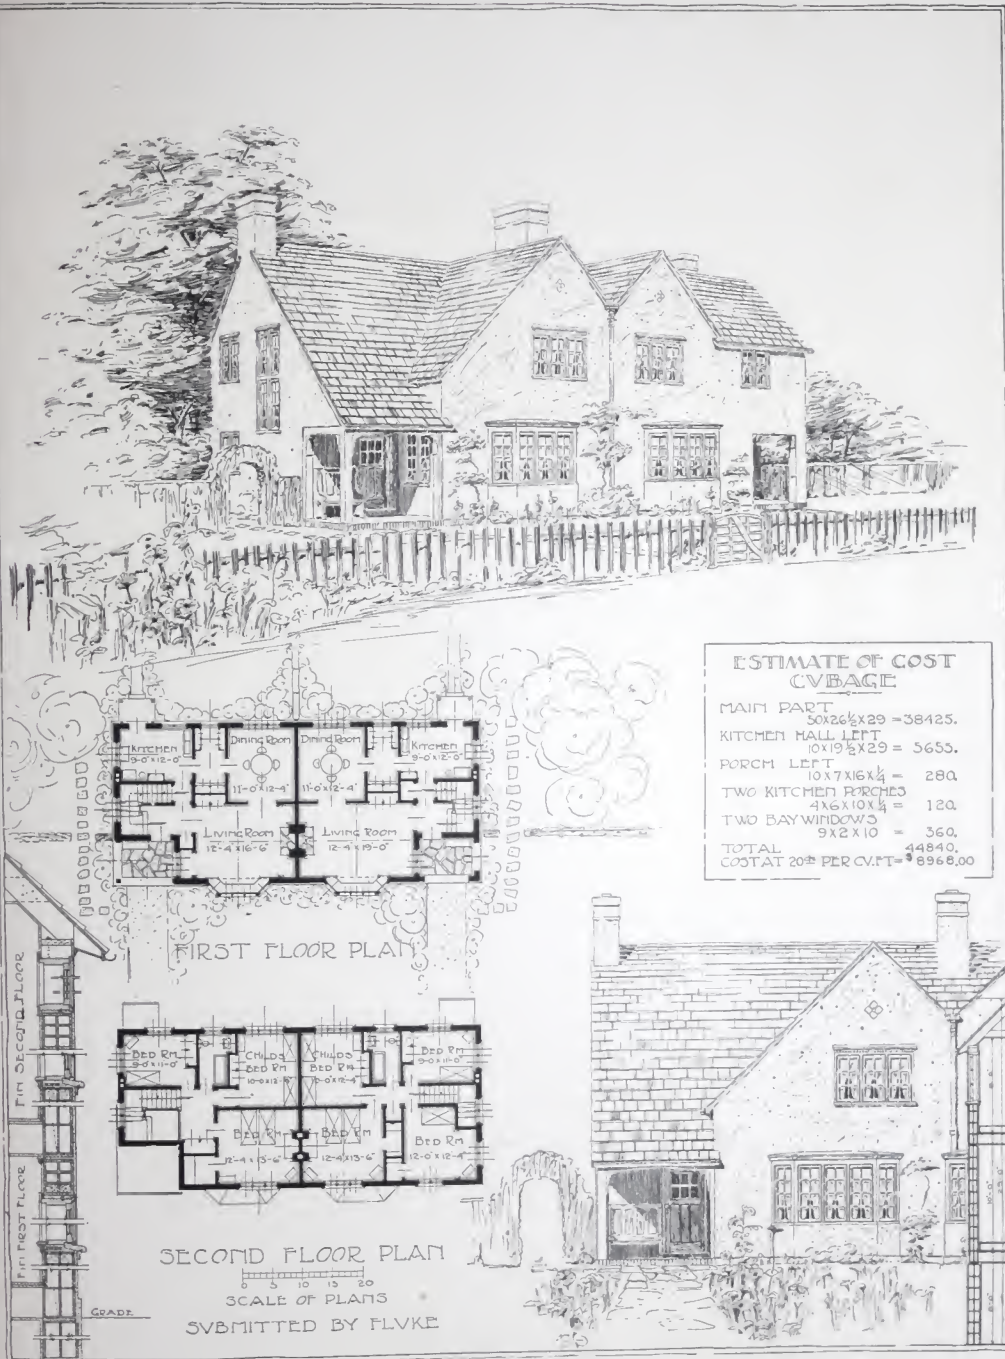 ESTIMATE OF COST
CVBAGE
MAIN PART
50X26½X29 = 38425.
KITCHEN HALL LEFT
10X19½X29 = 5655.
PORCH LEFT
10X7X16X¼ = 280.
TWO KITCHEN PORCHES
4X6X10X¼ = 120.
TWO BAY WINDOWS
9X2X10 = 360.
TOTAL 44840.
COST AT 20cts PER CV.FT = $8968.00
KITCHEN
9-0"X12-0"
DINING ROOM
11-0"X12-4"
DINING ROOM
11-0"X12-4"
KITCHEN
9-0"X12-0"
LIVING ROOM
12-4"X16-6"
LIVING ROOM
12-4"X19-0"
FIRST FLOOR PLAN
BED RM
9-0"X11-0"
CHILDS
BED RM
10-0X12-4"
CHILDS
BED RM
BED RM
9-0"X11-0"
BED RM
12-4"X13-6"
BED RM
12-4"X13-6"
BED RM
12-0"X12-4"
SECOND FLOOR PLAN
0 5 10 15 20
SCALE OF PLANS
SVBMITTED BY FLVKE
FIN SECOND FLOOR
FIN FIRST FLOOR
GRADE